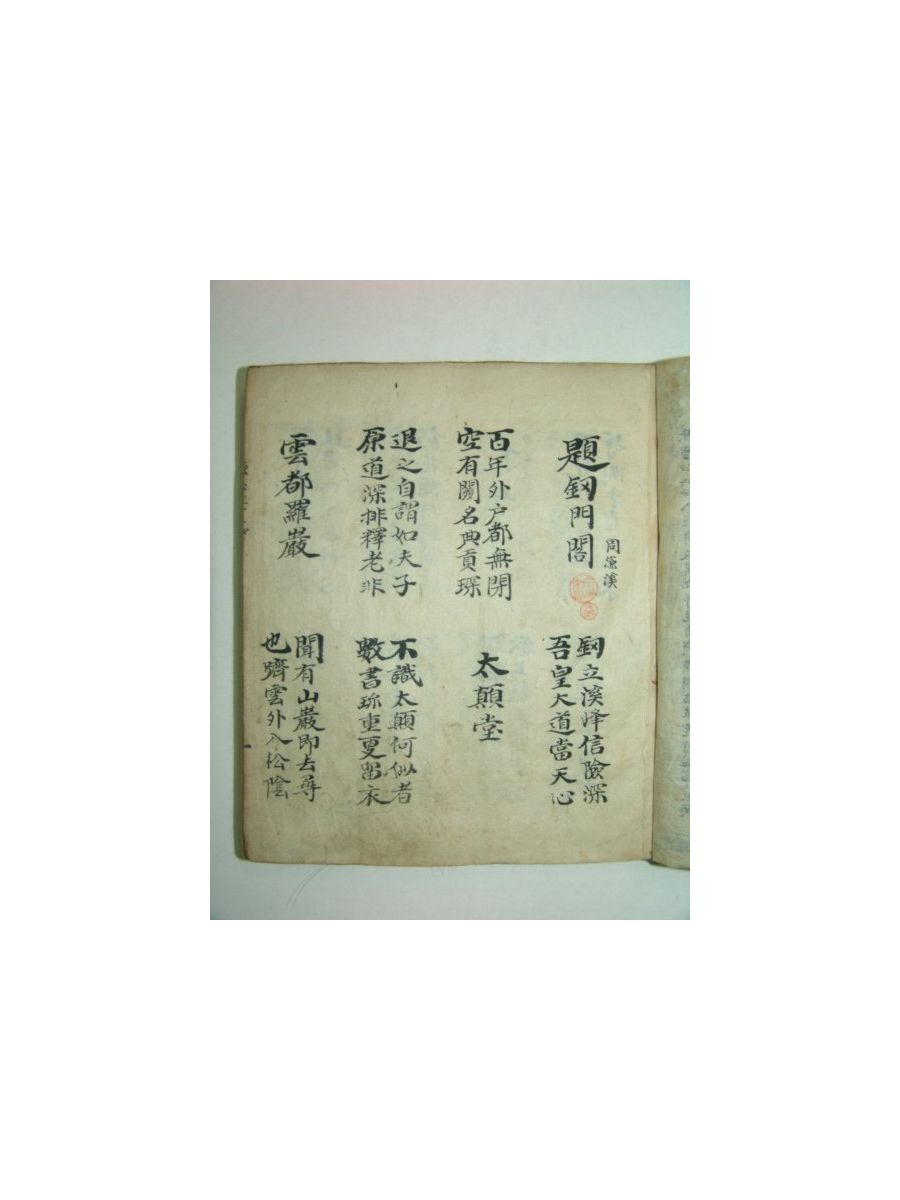 題釼門閣
周濂溪
釼立溪峰信險深
吾皇大道當天心
百年外户都無閉
空有關名典貢琛
太顛堂
退之自謂如夫子
原道深排釋老非
不識太顛何似者
數書珎重更留衣
雲都羅巖
聞有山巖即去尋
也躋雲外入松陰